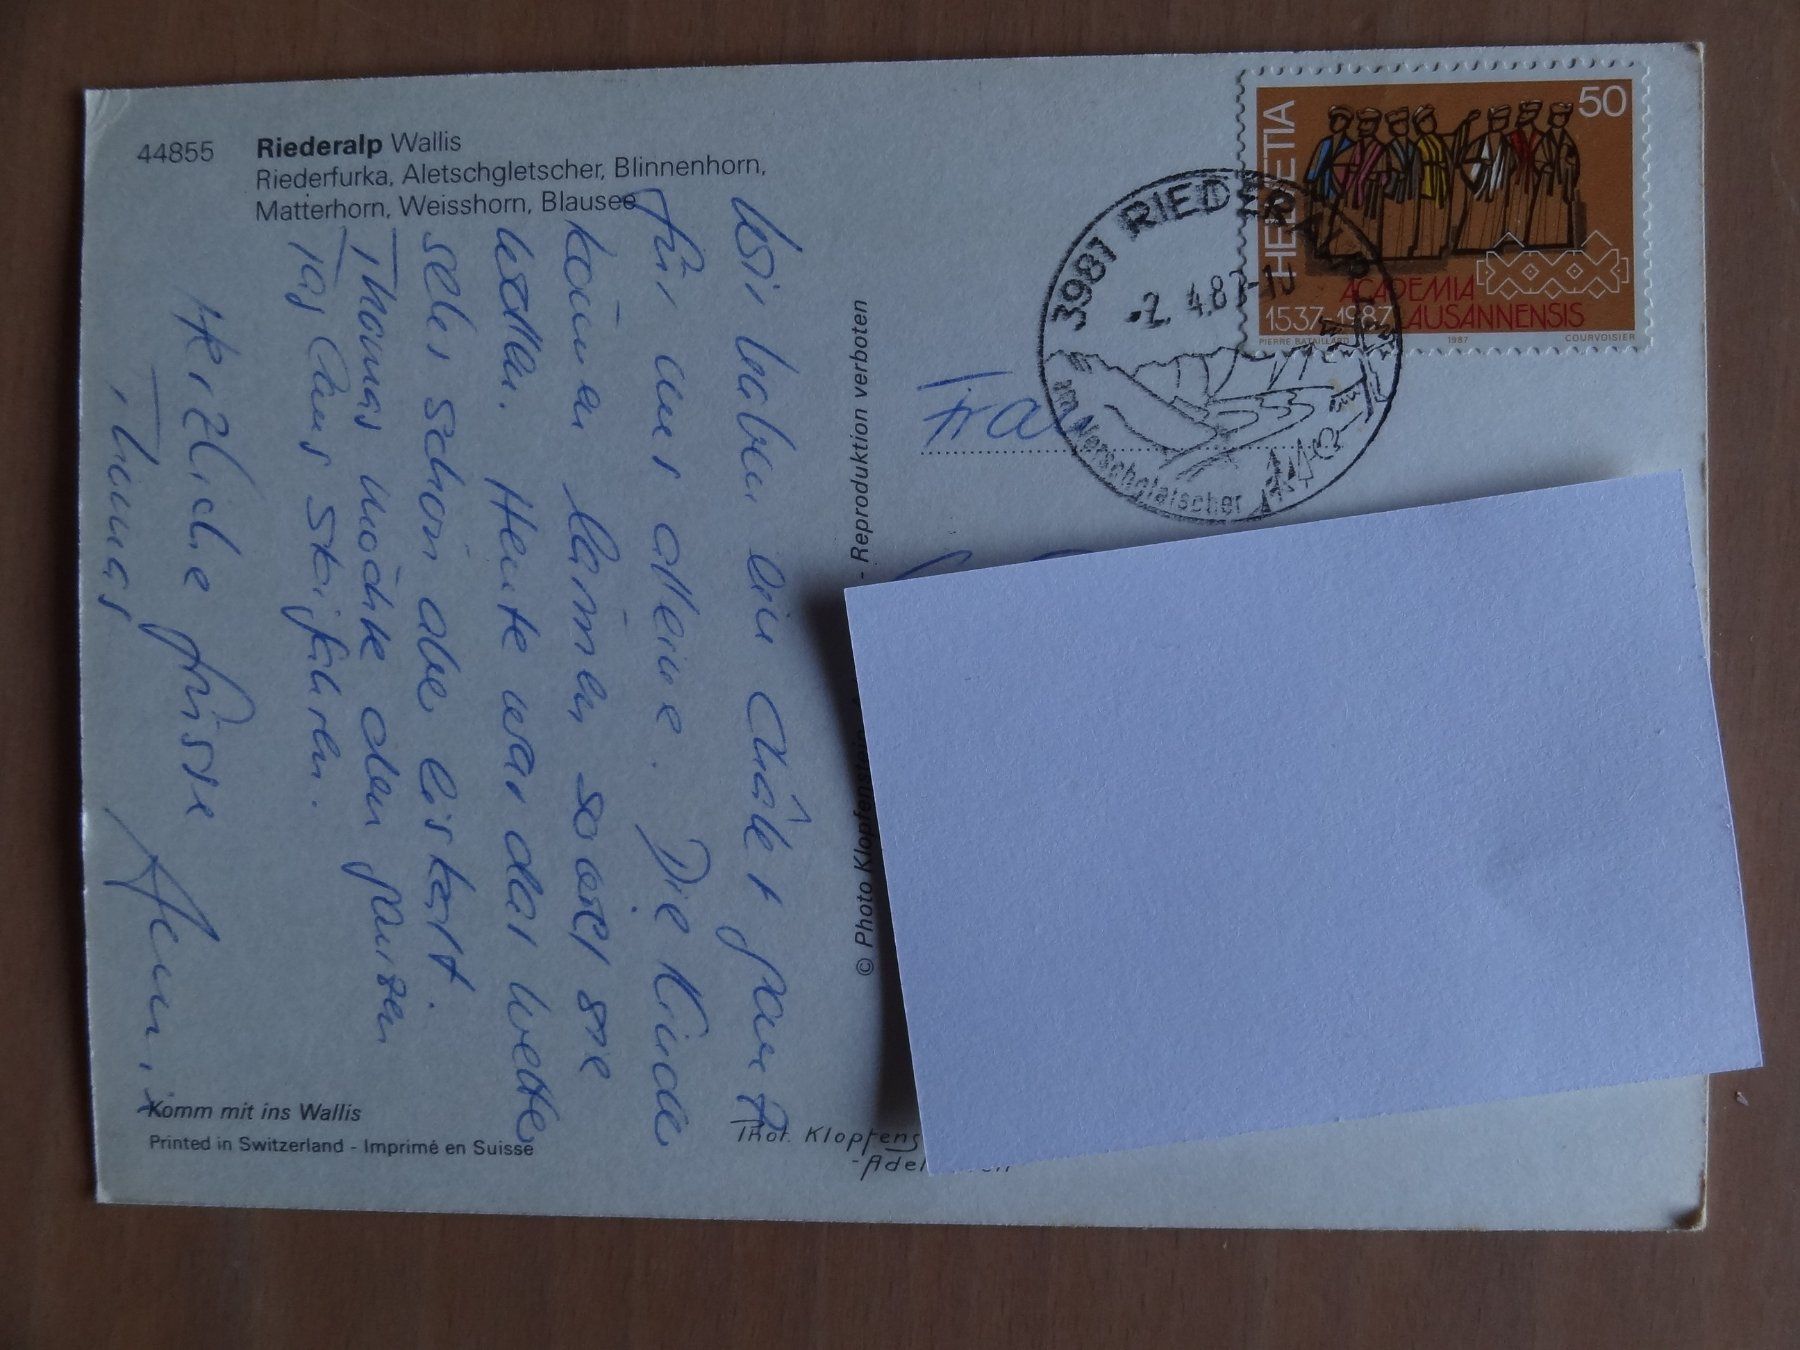 44855
Riederalp Wallis
Riederfurka, Aletschgletscher, Blinnenhorn,
Matterhorn, Weisshorn, Blausee
Wir haben ein Châlet ganz
für uns alleine. Die Kinder
können lärmen soviel sie
wollen. Heute war das Wetter
sehr schön aber eiskalt.
Thomas möchte den ganzen
Tag Skifahren.
Herzliche Grüsse
Thomas
Komm mit ins Wallis
Printed in Switzerland - Imprimé en Suisse
© Photo Klopfenstein
- Reproduktion verboten
Phot. Klopfens
-Adel
HELVETIA
50
ACADEMIA
1537-1987 LAUSANNENSIS
PIERRE BATAILLARD 1987 COURVOISIER
3981 RIEDERALP
-2. 4.87-10
am Aletschgletscher
Fra